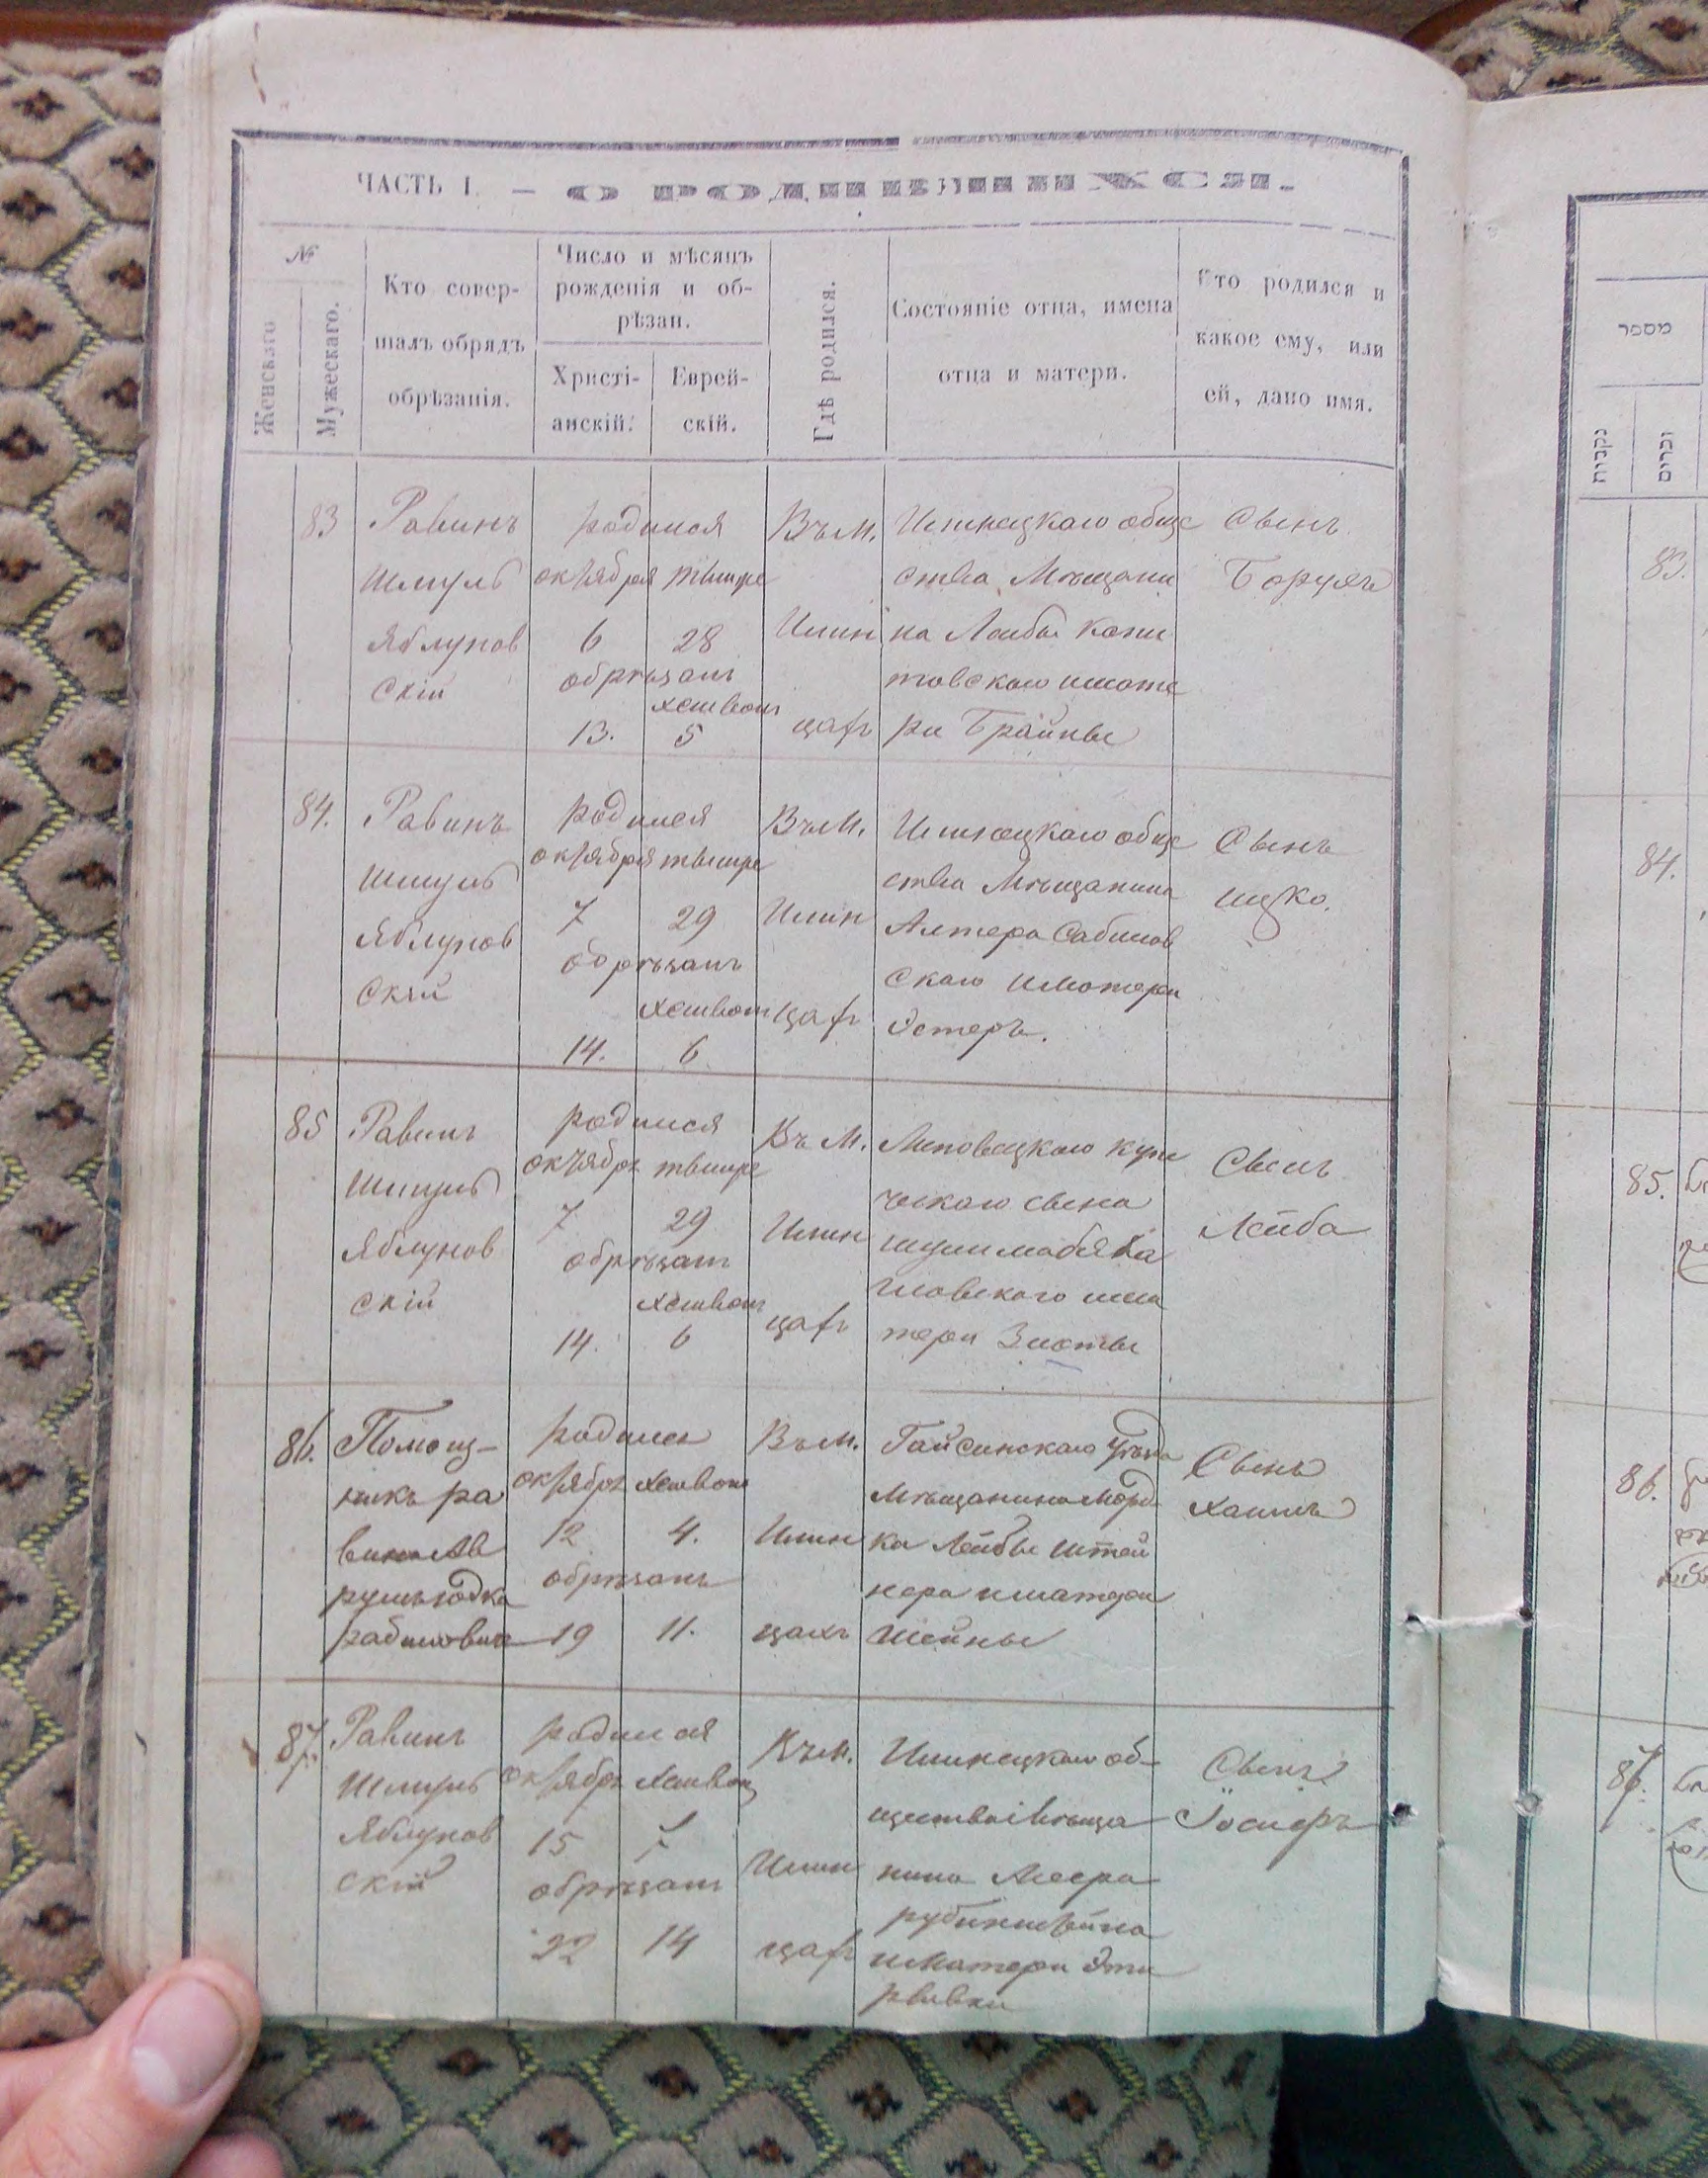 ЧАСТЬ I. — О РОДИВШИХСЯ.
№
Женскаго
Мужескаго.
Кто совер-
шалъ обрядъ
обрѣзанія.
Число и мѣсяцъ
рожденія и об-
рѣзан.
Христі-
анскій.
Еврей-
скій.
Гдѣ родился.
Состояніе отца, имена
отца и матери.
Кто родился и
какое ему, или
ей, дано имя.
83
Равинъ
Шмуль
Яблунов
скій
родился
октября тишре
6 28
обрѣзанъ
хешван
13. 5
Въ м.
Илин
цахъ
Илинецкаго обще
ства Мѣщани
на Лейбы
товскаго и мате
ри Брайны
Сынъ
Борухъ
84.
Равинъ
Шмуль
Яблунов
скій
родился
октября тишре
7 29
обрѣзанъ
хешван
14. 6
Въ м.
Илин
цахъ
Илинецкаго обще
ства Мѣщанина
Алтера
скаго и матери
Эстеръ.
Сынъ
Ицко.
85
Равинъ
Шмуль
Яблунов
скій
родился
октябр тишре
7 29
обрѣзанъ
хешван
14. 6
Въ М.
Илин
цахъ
Липовецкаго купе
ческаго сына
новскаго и ма
тери Злоты
Сынъ
Лейба
86.
Помощ-
никъ ра
вина Ав
румъ
рабинович
родился
октябр хешван
12 4.
обрѣзанъ
19 11.
Въ м.
Илин
цахъ
Гайсинскаго уѣзда
Мѣщанина Морд
ка Лейбы Штей
нера и матери
Шейны
Сынъ
Хаимъ
87.
Равинъ
Шмуль
Яблунов
скій
родился
октябр хешван
15 7
обрѣзанъ
22 14
Въ м.
Илин
цахъ
Илинецкаго об-
щества Мѣща
нина
рубинштейна
и Матери Эти
рывки
Сынъ
Іосифъ
מספר
נקבות
זכרים
83.
84.
85.
86.
87.